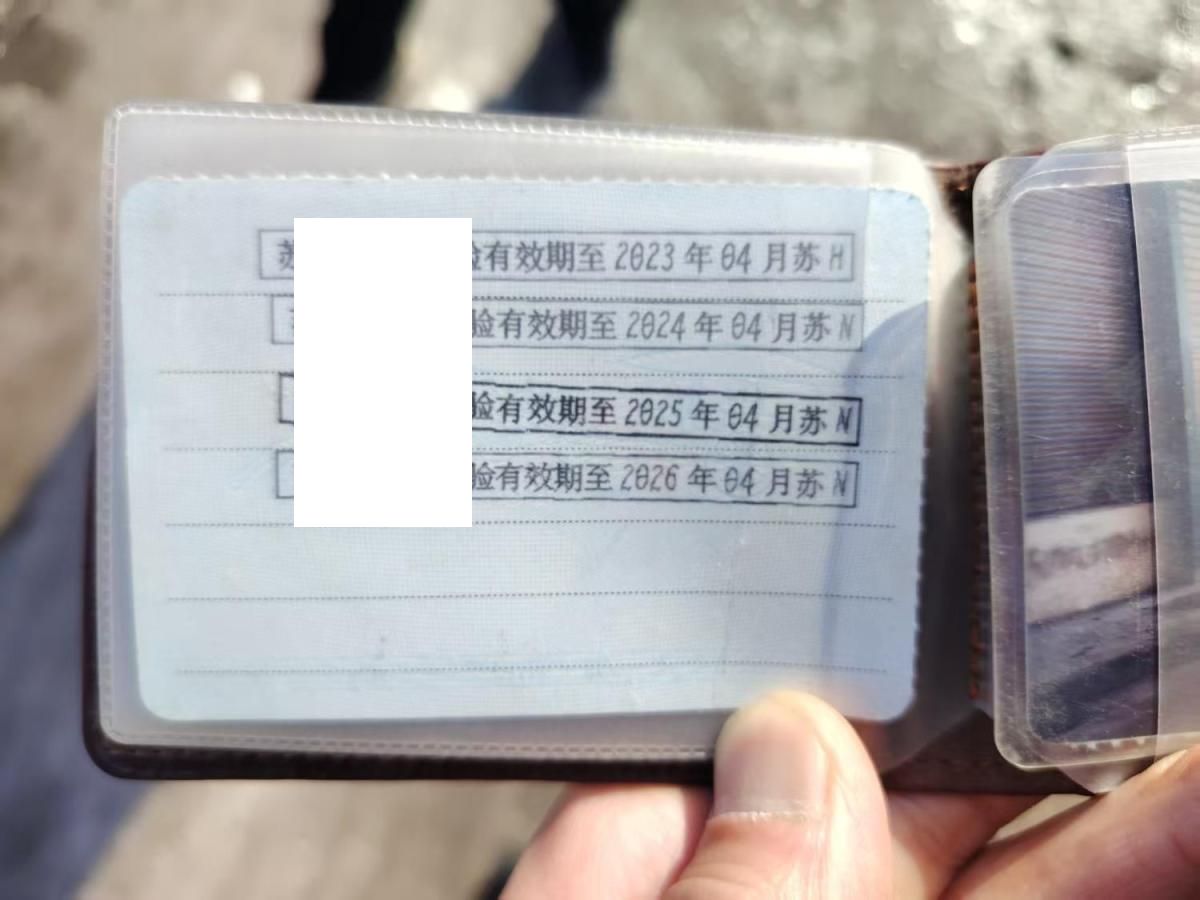 苏
验有效期至 2023 年 04 月苏 H
验有效期至 2024 年 04 月苏 N
验有效期至 2025 年 04 月苏 N
验有效期至 2026 年 04 月苏 N